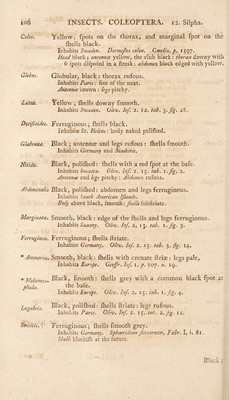 106 INSECTS. COLEOPTERA. 12. Silpha.
Colon. Yellow; spots on the thorax, and marginal spot on the
shells black.
Inhabits Sweden. Dermestes colon. Gmelin. p. 1597.
Head black; antennæ yellow, the club black: thorax downy with
6 spots disposed in a streak: abdomen black edged with yellow.
Globus. Globular, black: thorax rufous.
Inhabits Paris: size of the next.
Antennæ brown: legs pitchy.
Lutea. Yellow; shells downy smooth.
Inhabits Sweden. Oliv. Inf. 2. 12. tab. 3. fig. 28.
Dytiscoides. Ferruginous; shells black.
Inhabits St. Helens: body naked polished.
Glabrata. Black; antennæ and legs rufous: shells smooth.
Inhabits Germany and Madeira.
Nitida. Black, polished: shells with a red spot at the base.
Inhabits Sweden. Oliv. Inf. 2. 15. tab. 1. fig. 2.
Antennæ and legs pitchy: Abdomen rufous.
Abdominalis Black, polished: abdomen and legs ferruginous.
Inhabits South American Islands.
Body above black, smooth: shells substriate.
Marginata. Smooth, black: edge of the shells and legs ferruginous.
Inhabits Saxony. Oliv. Inf. 2. 15. tab. 1. fig. 3.
Ferruginea. Ferruginous; shells striate.
Inhabits Germany. Oliv. Inf. 2. 15. tab. 3. fig. 14.
* Armeria. Smooth, black: shells with crenate striæ: legs pale,
Inhabits Europe. Geoffr. Inf. 1. p. 107. n. 19.
* Melanocephala. Black, smooth: shells grey with a common black spot at
the base.
Inhabits Europe. Oliv. Inf. 2. 15. tab. 1. fig. 4.
Lugubris. Black, polished: shells striate: legs rufous.
Inhabits Paris. Oliv. Inf. 2. 15. tab. 2. fig. 12.
Ferruginous; shells smooth grey.
Inhabits Germany. Sphæridium Fabr. I, i. 81.
Shell blackish at the suture.
Black;